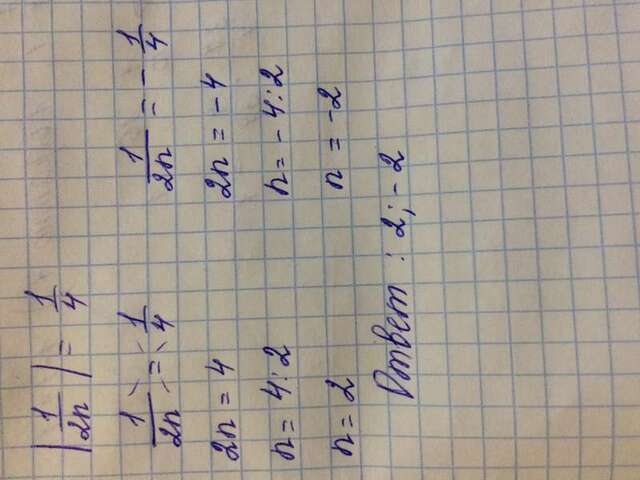 |1/2n| = 1/4
1/2n = 1/4
2n = 4
n = 4:2
n = 2
1/2n = - 1/4
2n = -4
n = - 4:2
n = -2
Ответ : 2; -2